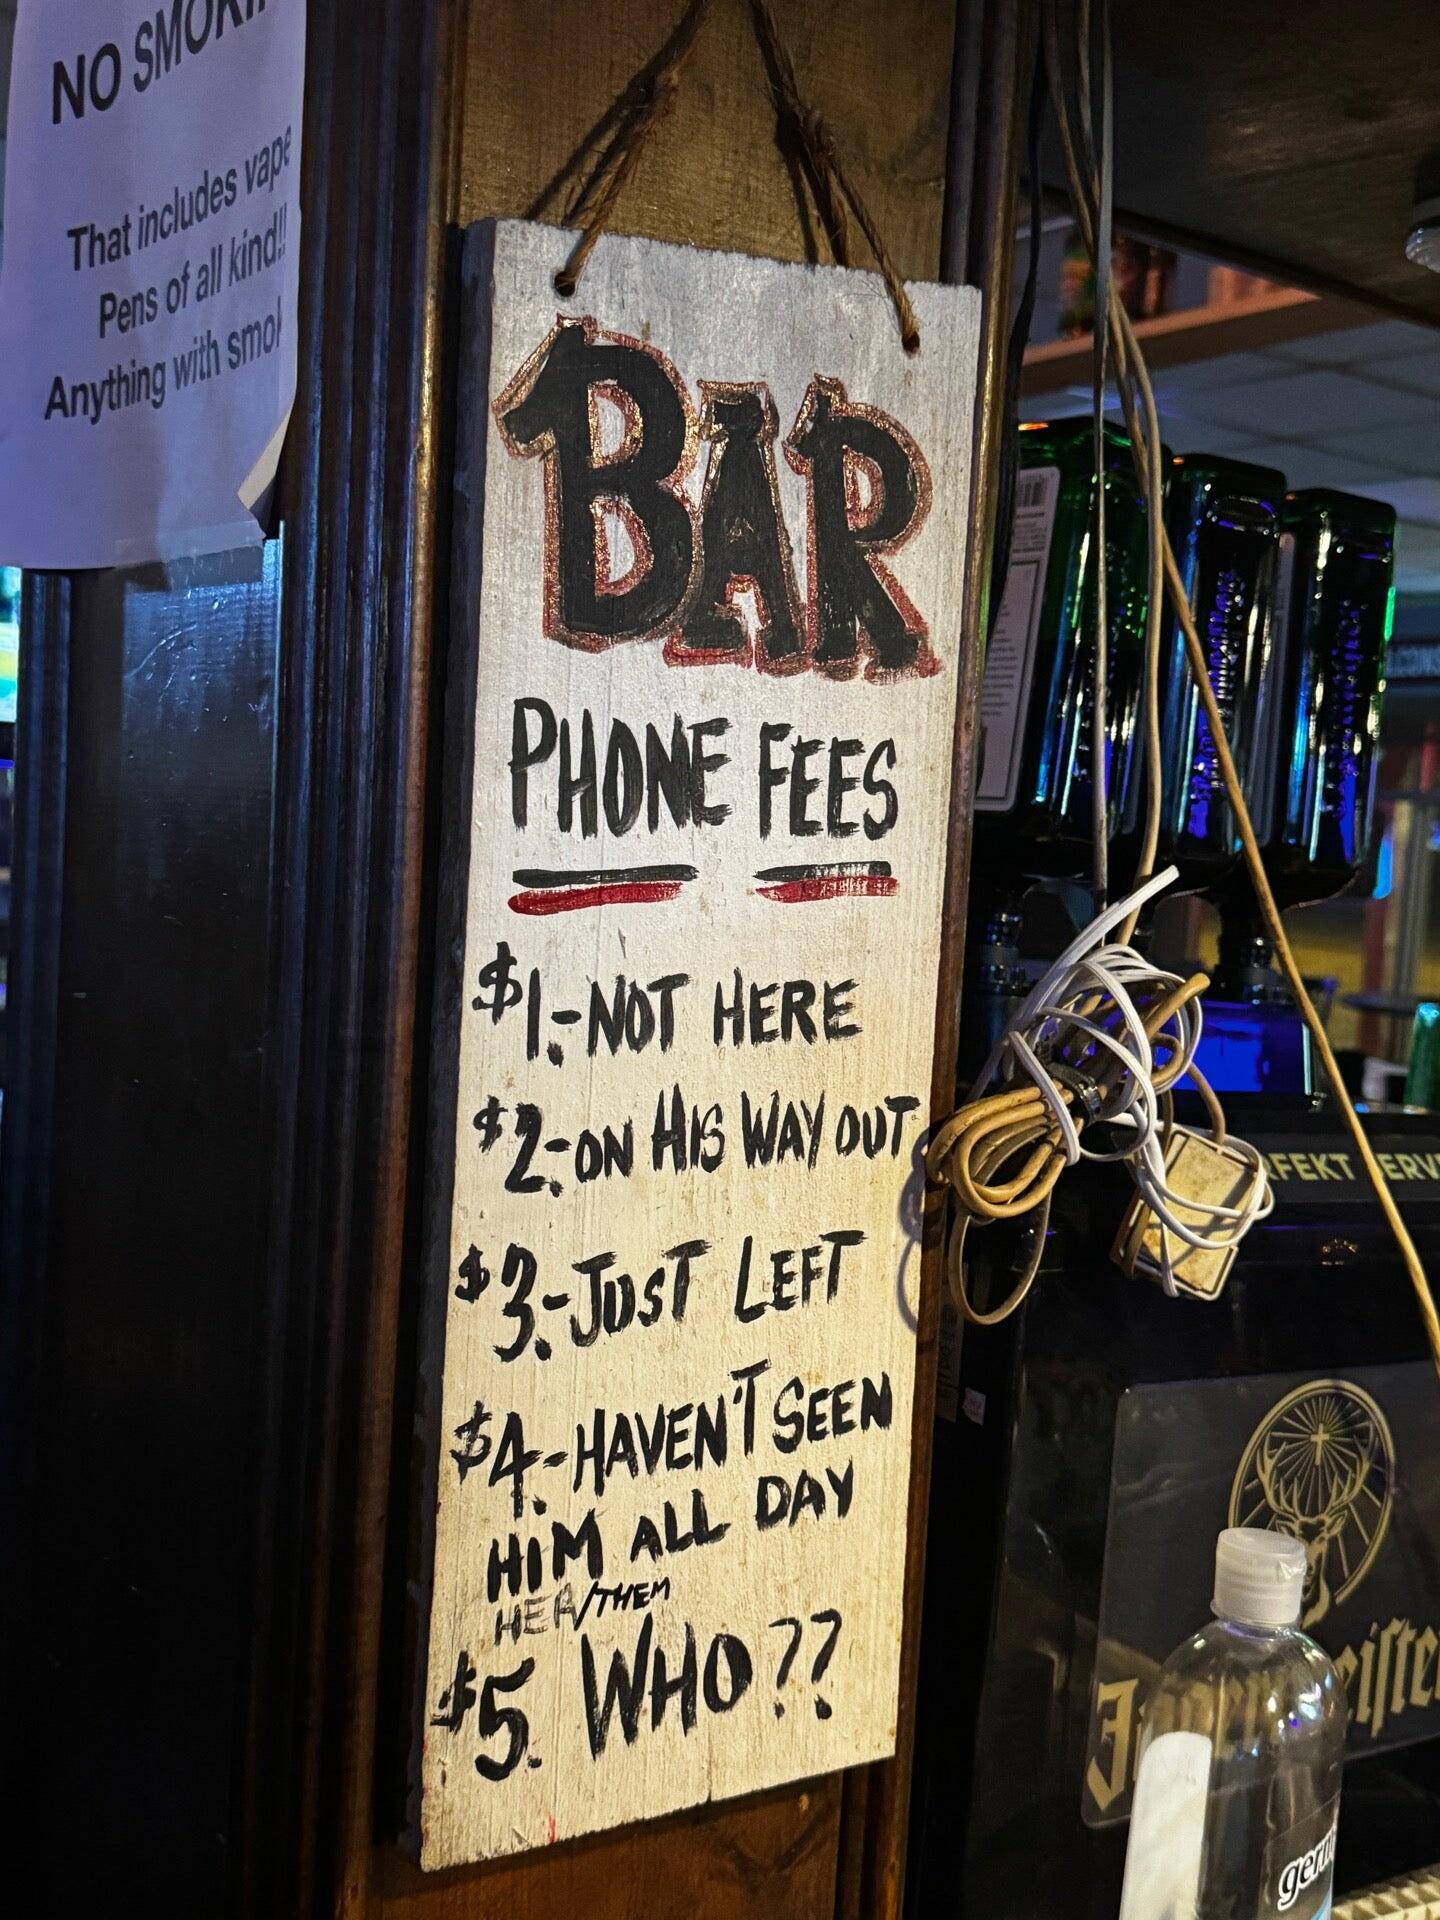 NO
That includes
Pens of all kind!!
Anything with
BAR
PHONE FEES
$1.-NOT HERE
$2.-ON HIS WAY OUT
$3.-JUST LEFT
$4.-HAVEN'T SEEN
HIM ALL DAY
HER/THEM
$5. WHO??
Jägermeister